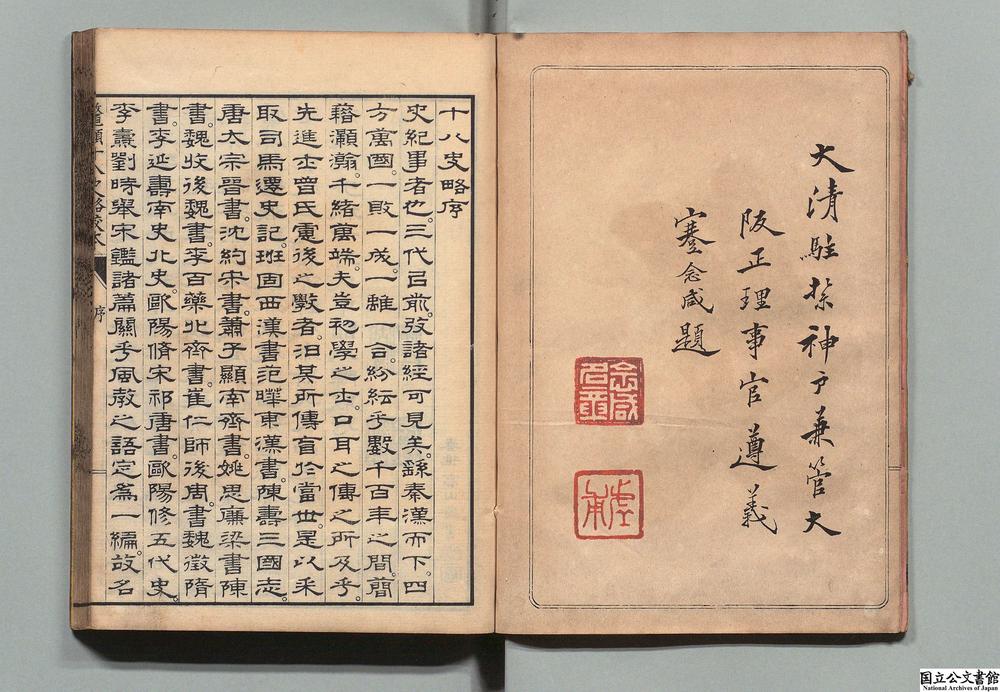 大清駐紮神戶兼管大
阪正理事官遵義
蹇念咸題
十八史略序
史紀事者也。三代㠯前。攷諸經可見矣。繇秦漢而下。四
方萬國。一敗一成。一離一合。紛紜乎數千百年之間。簡
籍灝瀚。千緒萬端。夫豈初學之士口耳之傳之所及乎。
先進士曾氏憲後之斅者。汩其所傳盲於當世。是以采
取司馬遷史記。班固西漢書。范曄東漢書。陳壽三國志。
唐太宗晉書。沈約宋書。蕭子顯南齊書。姚思廉梁書陳
書。魏收後魏書。李百藥北齊書。崔仁師後周書。魏徵隋
書。李延壽南史北史。歐陽脩宋祁唐書。歐陽修五代史。
李燾劉時舉宋鑑諸篇關乎風教之語定爲一編。故名
序
国立公文書館
National Archives of Japan